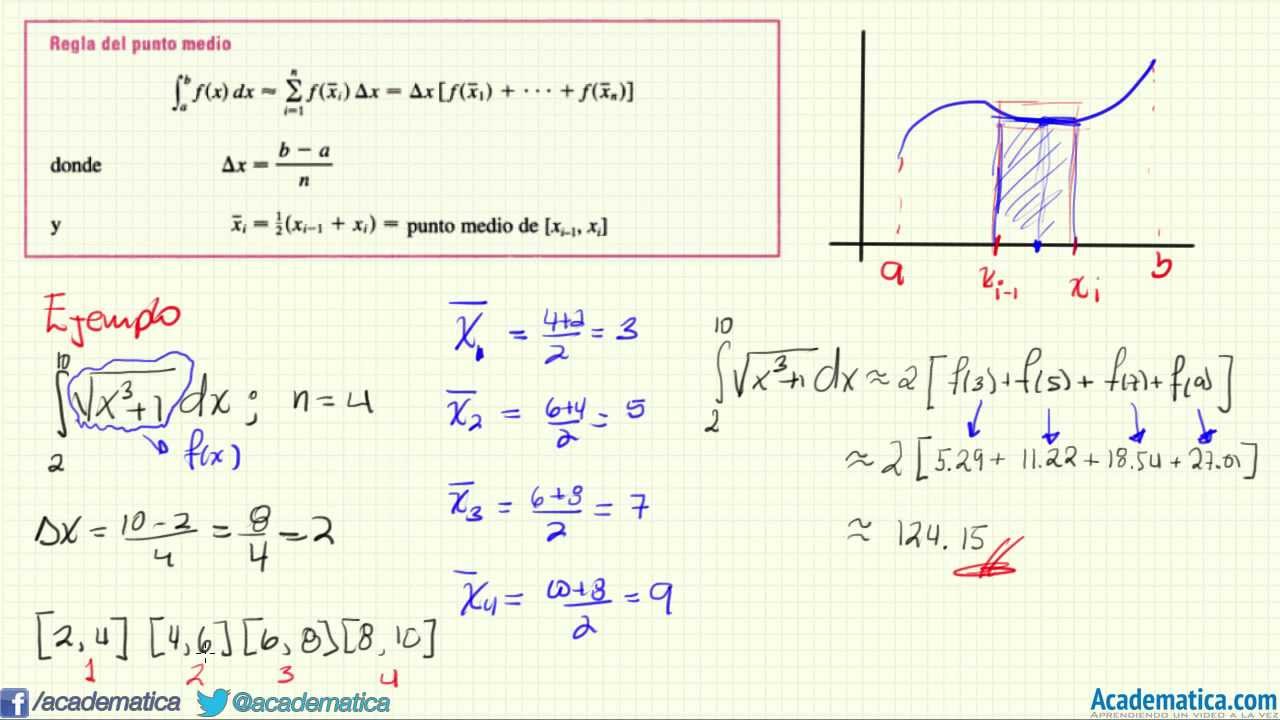 Regla del punto medio
∫_a^b f(x) dx ≈ Σ_{i=1}^n f(x̄_i) Δx = Δx [f(x̄_1) + ··· + f(x̄_n)]
donde Δx = (b − a)/n
y x̄_i = ½(x_{i−1} + x_i) = punto medio de [x_{i−1}, x_i]
a x_{i-1} x_i b
Ejemplo
∫_2^10 √(x³+1) dx ; n = 4
f(x)
Δx = (10 − 2)/4 = 8/4 = 2
[2,4] [4,6] [6,8] [8,10]
1 2 3 4
x̄_1 = (4+2)/2 = 3
x̄_2 = (6+4)/2 = 5
x̄_3 = (6+8)/2 = 7
x̄_4 = (10+8)/2 = 9
∫_2^10 √(x³+1) dx ≈ 2 [f(3) + f(5) + f(7) + f(9)]
≈ 2 [5.29 + 11.22 + 18.54 + 27.01]
≈ 124.15
/academatica @academatica
Academatica.com
APRENDIENDO UN VIDEO A LA VEZ